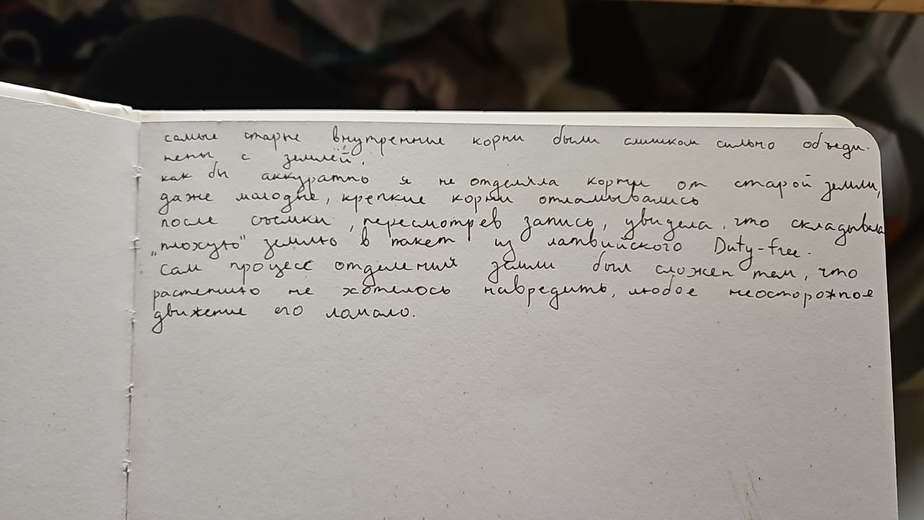 самые старые внутренние корни были слишком сильно объеди-
нены с землёй.
как бы аккуратно я не отделяла корни от старой земли,
даже молодые, крепкие корни отламывались
после съемки, пересмотрев запись, увидела, что складывала
"плохую" землю в пакет из латвийского Duty-free.
Сам процесс отделения земли был сложен тем, что
растению не хотелось навредить, любое неосторожное
движение его ломало.